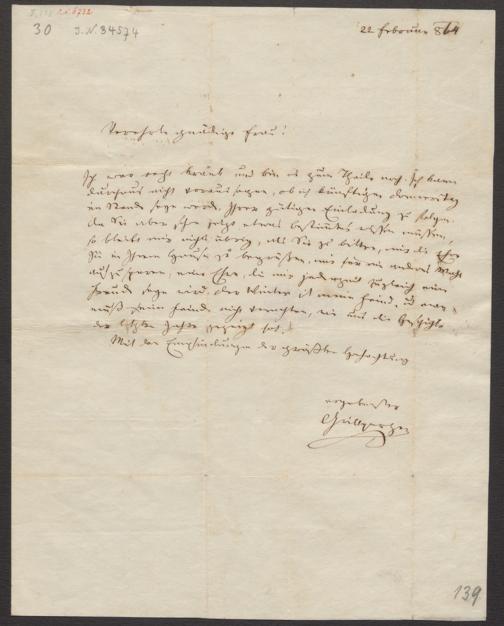 30 J.N. 34574
22 Februar 864
Verehrte gnädige Frau!
Ich war recht krank und bin es zum Theile noch. Ich kann
durchaus nicht voraussagen, ob ich künftigen Donnerstag
im Stande seyn werde, Ihrer gütigen Einladung zu folgen.
Da Sie aber schon jetzt etwas bestimmtes wissen müssen,
so bleibt mir nichts übrig, als Sie zu bitten, mir die Ehre
Sie in Ihrem Hause zu begrüßen, nur für ein anderes Mahl
aufzusparen, eine Ehre, die mir jederzeit zugleich eine
Freude seyn wird. Der Winter ist mein Feind, und man
muß seine Feinde nicht verachten, wie uns die Geschichte
der letzten Jahre gezeigt hat.
Mit den Empfindungen der größten Hochachtung
ergebenster
Grillparzer
139